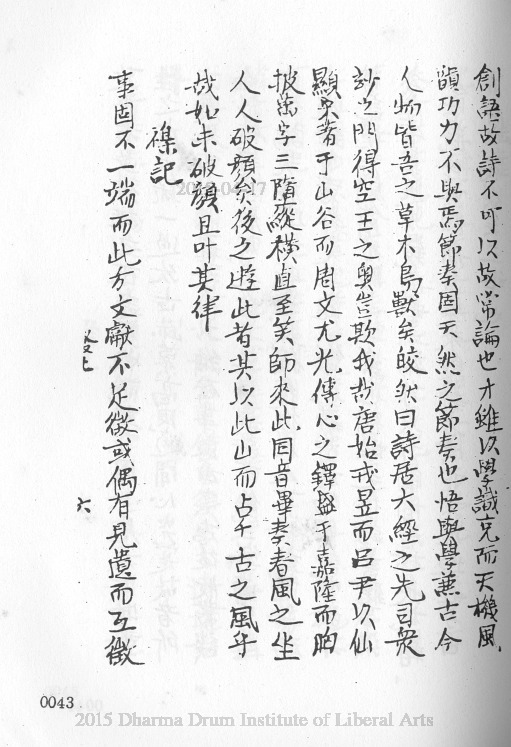 創語故詩不可以故常論也才雖以學識充而天機風
韻功力不與焉節奏固天然之節奏也悟與學兼古今
人物皆吾之草木鳥獸矣皎然曰詩居大經之先司眾
妙之門得空王之奧豈欺我哉唐始戒昱而呂尹以仙
顯宋著于山谷而周文尤光傳心之鐸盛于嘉隆而昫
披萬字三墮縱橫直至笑師來此同音畢奏春風之坐
人人破顏矣後之遊此者其以此山而占千古之風乎
哉如未破顏且叶其律
襍記
事固不一端而此方文獻不足徵或偶有見遺而互徵
六
2019-04-17
0043
2015 Dharma Drum Institute of Liberal Arts